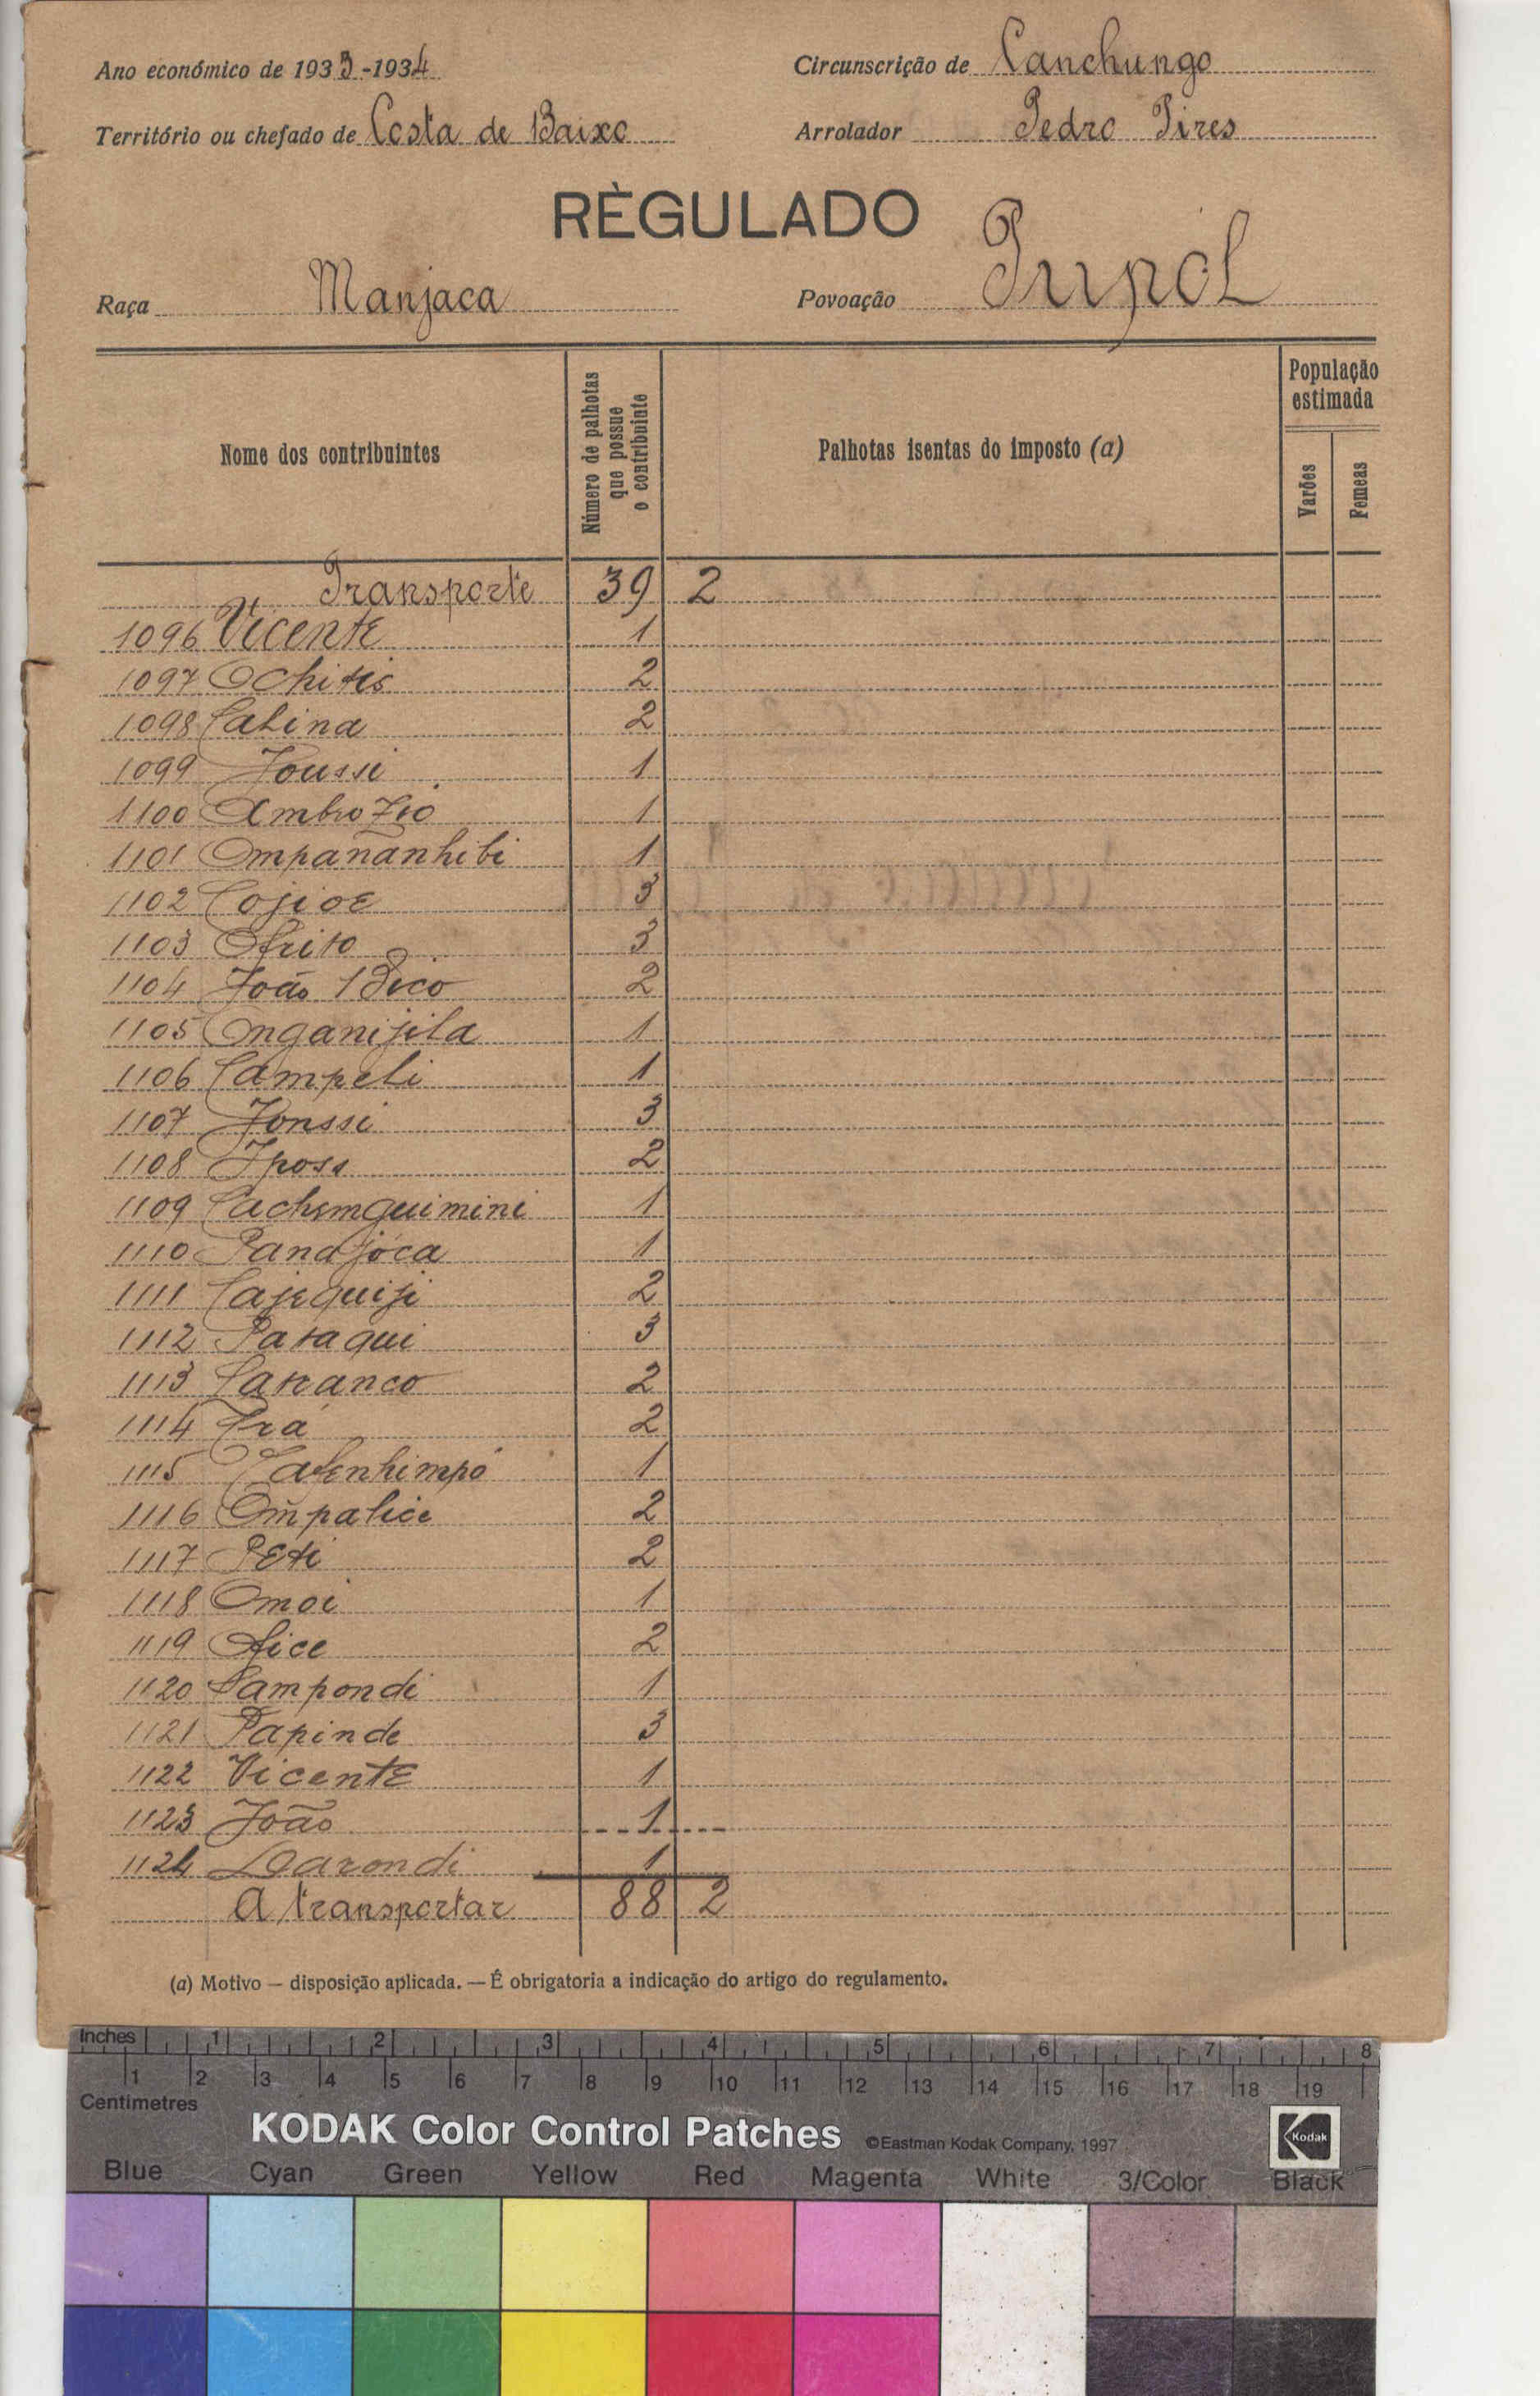 Ano económico de 1933-1934 Circunscrição de Canchungo
Território ou chefado de Costa de Baixo Arrolador Pedro Pires
RÈGULADO
Raça Manjaca Povoação
Nome dos contribuintes Número de palhotas que possue o contribuinte Palhotas isentas do imposto (a) População estimada Varões Femeas
Transporte 39 2
1096 Vicente 1
1097 Ochitis 2
1098 Catina 2
1099 Joussi 1
1100 Ambrozio 1
1101 Ompananhibi 1
1102 Cojioe 3
1103 3
1104 João Bico 2
1105 Onganijila 1
1106 Campeli 1
1107 Jonssi 3
1108 Iposs 2
1109 Cachemguimini 1
1110 Panajóca 1
1111 Cajequiji 2
1112 Pataqui 3
1113 2
1114 2
1115 1
1116 Ompalice 2
1117 Peti 2
1118 Omoi 1
1119 2
1120 Sampondi 1
1121 Papinde 3
1122 Vicente 1
1123 João 1
1124 Darondi 1
A transportar 88 2
(a) Motivo — disposição aplicada. — É obrigatoria a indicação do artigo do regulamento.
Inches 1 2 3 4 5 6 7 8
1 2 3 4 5 6 7 8 9 10 11 12 13 14 15 16 17 18 19
Centimetres
KODAK Color Control Patches ©Eastman Kodak Company, 1997 Kodak
Blue Cyan Green Yellow Red Magenta White 3/Color Black